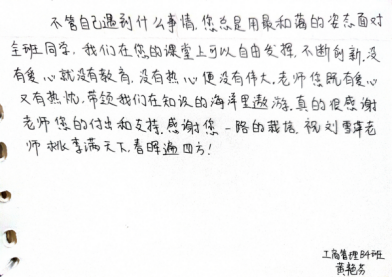 不管自己遇到什么事情,您总是用最和蔼的姿态面对
全班同学,我们在您的课堂上可以自由发挥,不断创新,没
有爱心就没有教育,没有热心便没有伟大,老师您既有爱心
又有热忱,带领我们在知识的海洋里遨游,真的很感谢
老师您的付出和支持,感谢您一路的栽培,祝刘雪萍老
师桃李满天下,春晖遍四方!
工商管理84班
黄艳芬